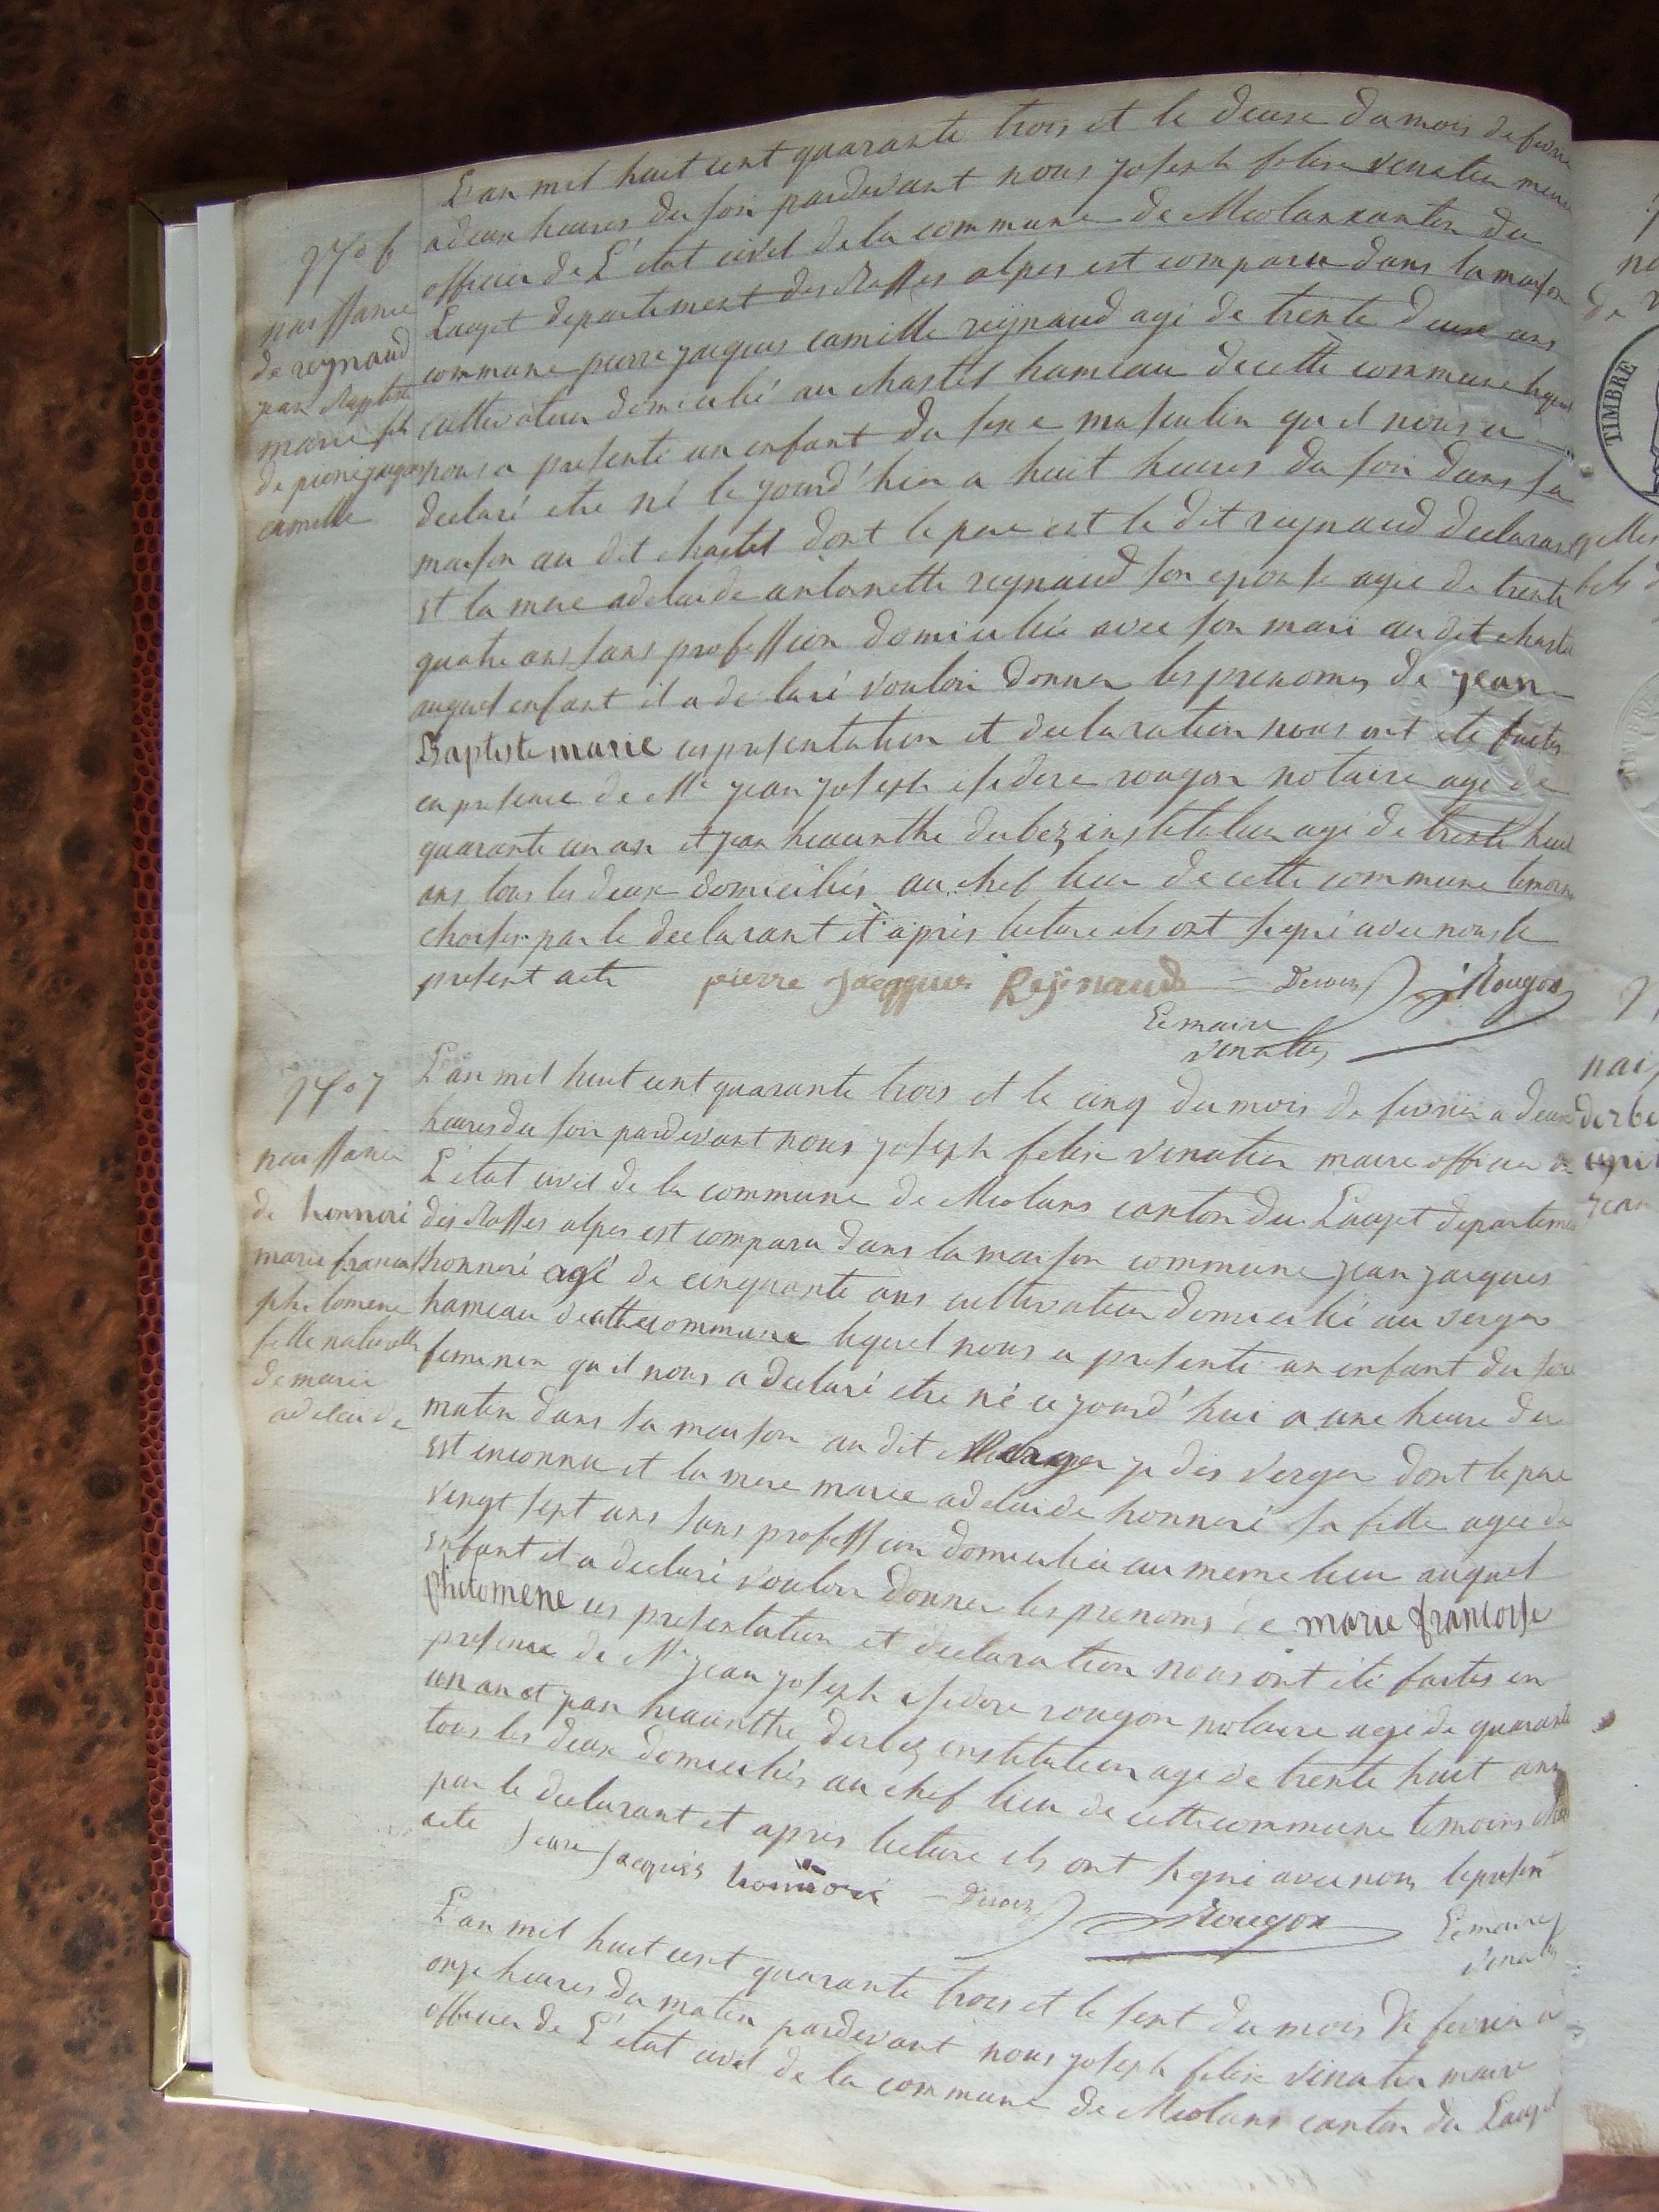 L'an mil huit cent quarante trois et le deuxe du mois de fevrier
a deux heures du soir pardevant nous joseph felixe venatier maire
officier de L'état civil de la commune de Meolans canton du
Lauzet departement des Basses alpes est comparu dans la maison
commune pierre jacques camille reynaud agé de trente deux ans
cultivateur domicilié au chastel hameau de cette commune lequel
nous a presenté un enfant du sexe masculin qu'il nous a
declaré etre né le jourd'hier a huit heures du soir dans sa
maison au dit chastel dont le pere est le dit reynaud declarant
et la mere adelaide antoinette reynaud son epouse agée de trente
quatre ans sans profession domiciliée avec son mari au dit chastel
auquel enfant il a declaré vouloir donner les prenoms de jean
Baptiste marie ces presentation et declaration nous ont été faites
en presence de Me jean joseph isidore rougon notaire agé de
quarante un an et jean hiacinthe derbez instituteur agé de trente huit
ans tous les deux domiciliés au chef lieu de cette commune temoins
choisis par le declarant et après lecture ils ont signé avec nous le
present acte pierre jacques Rejnaud Derbez Rougon
Le maire
venatier
No 6
naissance
de reynaud
jean Baptiste
marie fils
de pierre jacques
camille
L'an mil huit cent quarante trois et le cinq du mois de fevrier a deux
heures du soir pardevant nous joseph felixe venatier maire officier de
L'état civil de la commune de Meolans canton du Lauzet departement
des Basses alpes est comparu dans la maison commune jean jacques
honnoré agé de cinquante ans cultivateur domicilié au verger
hameau de cette commune lequel nous a presenté un enfant du sexe
feminin qu'il nous a declaré etre né ce jourd'hui a une heure du
matin dans sa maison au dit verger je dis verger dont le pere
est inconnu et la mere marie adelaide honnoré sa fille agée de
vingt sept ans sans profession domiciliée au meme lieu auquel
enfant il a declaré vouloir donner les prenoms de marie francoise
philomene ces presentation et declaration nous ont été faites en
presence de Me jean joseph isidore rougon notaire agé de quarante
un an et jean hiacinthe derbez instituteur agé de trente huit ans
tous les deux domiciliés au chef lieu de cette commune temoins
par le declarant et apres lecture ils ont signé avec nous le present
acte jean jacques honnoré Derbez Rougon Le maire
venatier
No 7
naissance
de honnoré
marie francoise
philomene
fille naturelle
de marie
adelaide
L'an mil huit cent quarante trois et le sept du mois de fevrier a
onze heures du matin pardevant nous joseph felixe venatier maire
officier de L'état civil de la commune de Meolans canton du Lauzet
TIMBRE